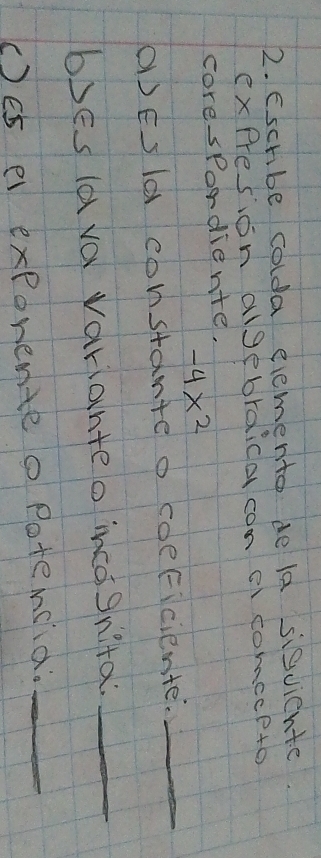 2. Escribe cada elemento de la siguiente
expresión algebraica con el comcepto
corespondiente.
-4x²
a) Es la constante o coeficiente: ____
b) Es la va variante o incógnita: ____
c) Es el exponente o Potencia: ____